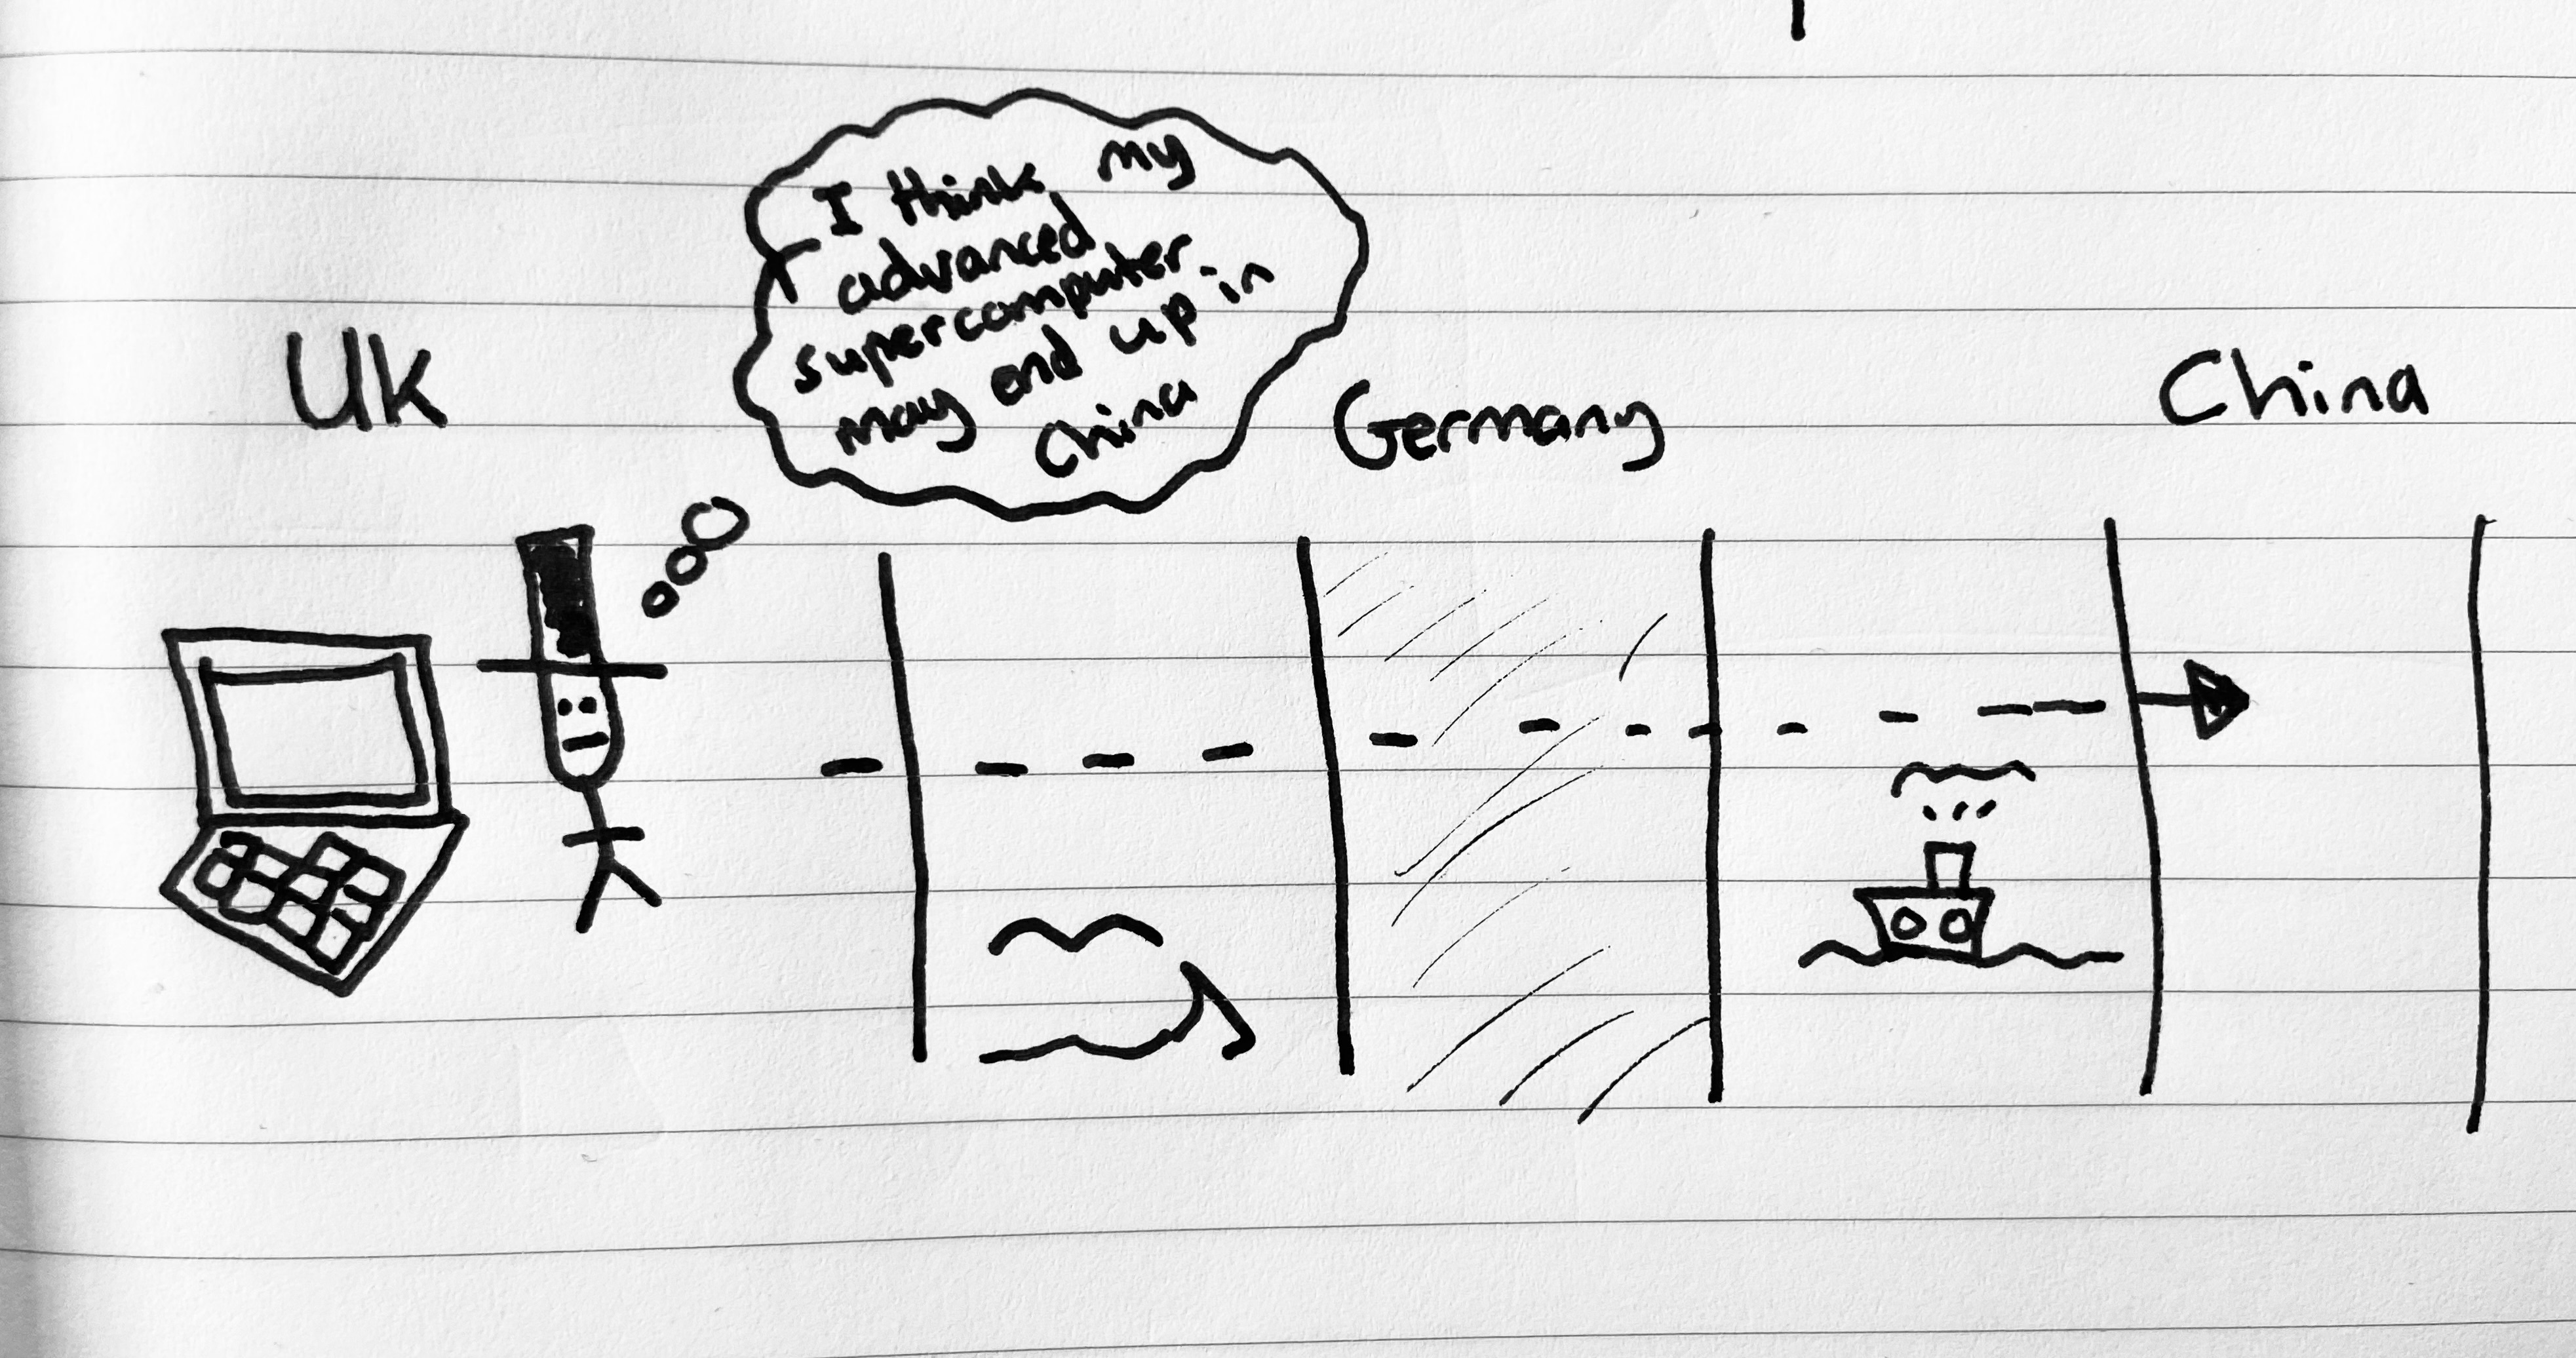 UK
I think my
advanced
supercomputer
may end up in
China
Germany
China